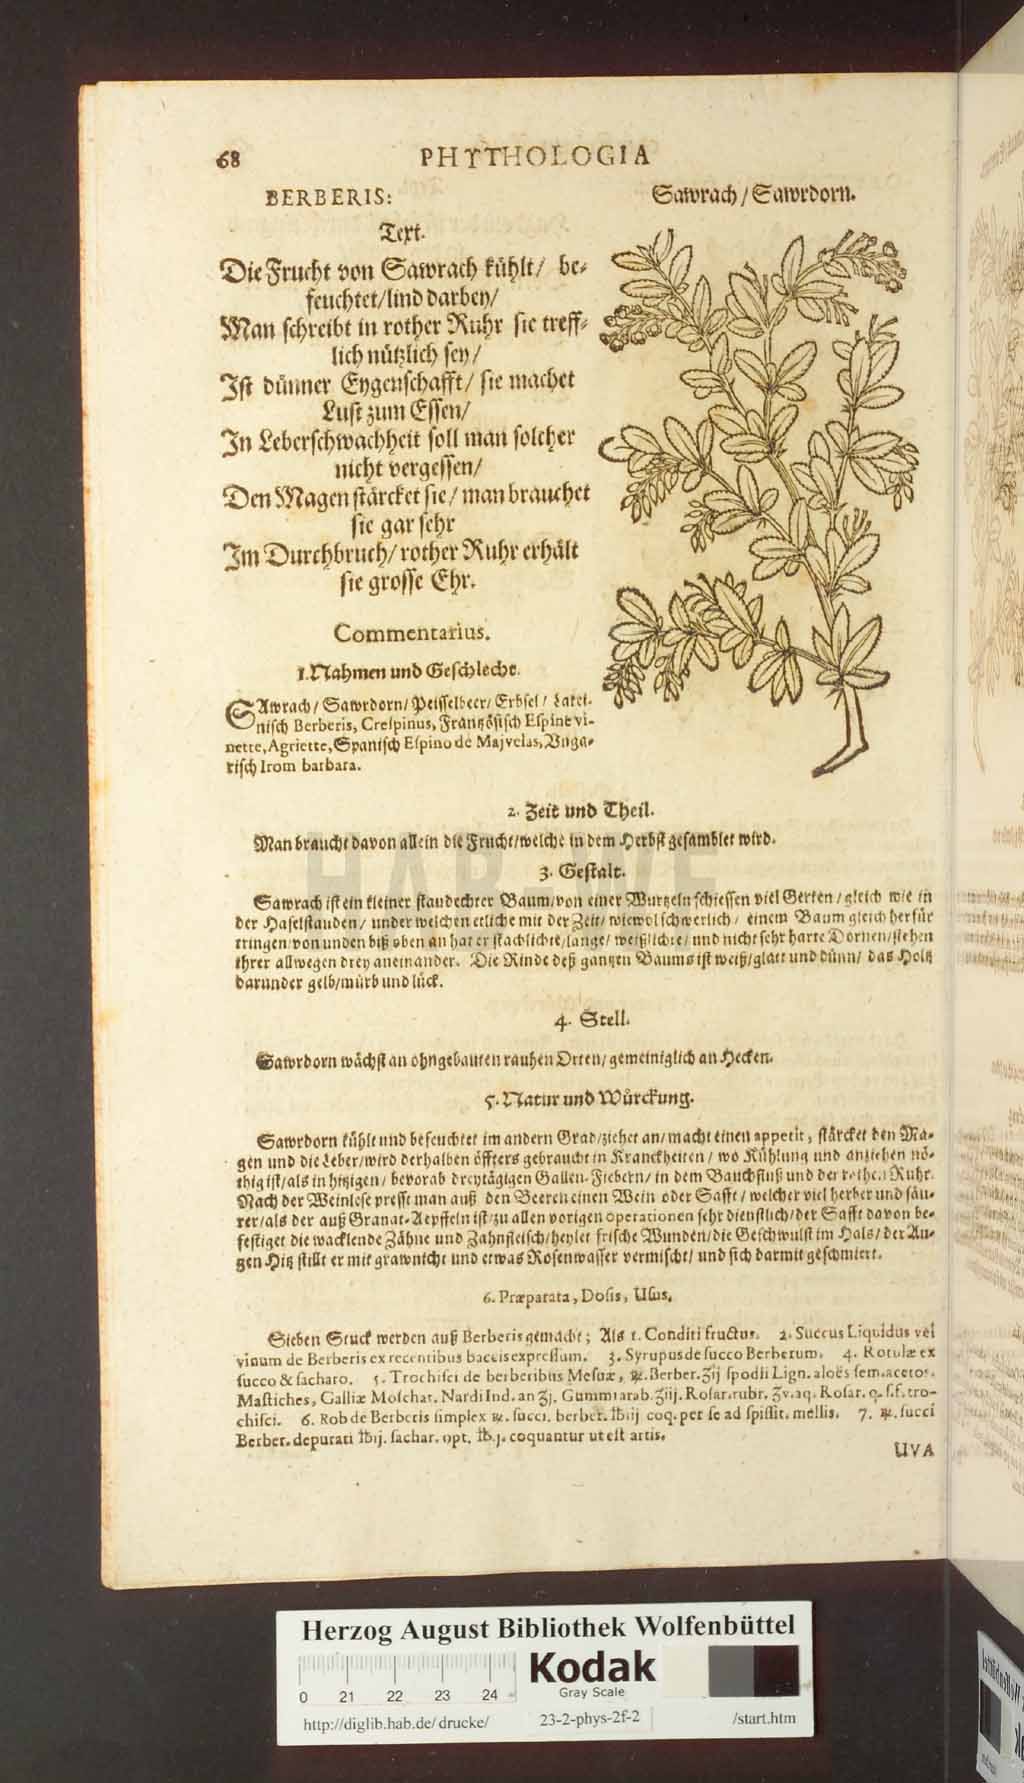 68
PHYTHOLOGIA
BERBERIS:
Sawrach / Sawrdorn.
Text.
Die Frucht von Sawrach kühlt / be-
feuchtet / lind darbey /
Man schreibt in rother Ruhr sie treff-
lich nützlich sey /
Ist dünner Eygenschafft / sie machet
Lust zum Essen /
In Leberschwachheit soll man solcher
nicht vergessen /
Den Magen stärcket sie / man brauchet
sie gar sehr
Im Durchbruch / rother Ruhr erhält
sie grosse Ehr.
Commentarius.
1. Nahmen und Geschlecht.
SAwrach / Sawrdorn / Peisselbeer / Erbsel / Latei-
nisch Berberis, Crespinus, Frantzösisch Espine vi-
nette, Agriette, Spanisch Espino de Majvelas, Unga-
risch Irom barbara.
2. Zeit und Theil.
Man braucht davon allein die Frucht / welche in dem Herbst gesamblet wird.
3. Gestalt.
Sawrach ist ein kleiner staudechter Baum / von einer Wurtzeln schiessen viel Gerten / gleich wie in
der Haselstauden / under welchen etliche mit der Zeit / wiewol schwerlich / einem Baum gleich herfür
tringen / von unden biß oben an hat er stachlichte / lange / weißlichte / und nicht sehr harte Dornen / stehen
ihrer allwegen drey aneinander. Die Rinde deß gantzen Baums ist weiß / glatt und dünn / das Holtz
darunder gelb / mürb und lück.
4. Stell.
Sawrdorn wächst an ohngebauten rauhen Orten / gemeiniglich an Hecken.
5. Natur und Würckung.
Sawrdorn kühlt und befeuchtet im andern Grad / ziehet an / macht einen appetit, stärcket den Ma-
gen und die Leber / wird derhalben öffters gebraucht in Kranckheiten / wo Kühlung und anziehen nö-
thig ist / als in hitzigen / bevorab dreytägigen Gallen-Fiebern / in dem Bauchfluß und der rothen Ruhr.
Nach der Weinlese presst man auß den Beeren einen Wein oder Safft / welcher viel herber und säu-
rer / als der auß Granat-Aepffeln ist / zu allen vorigen operationen sehr dienstlich / der Safft davon be-
festiget die wacklende Zähne und Zahnfleisch / heylet frische Wunden / die Geschwulst im Hals / der Au-
gen Hitz stillt er mit grawnicht und etwas Rosenwasser vermischt / und sich darmit geschmiert.
6. Præparata, Dosis, Usus.
Sieben Stuck werden auß Berberis gemacht; Als 1. Conditi fructus. 2. Succus Liquidus vel
vinum de Berberis ex recentibus baccis expressum. 3. Syrupus de succo Berberum. 4. Rotulæ ex
succo & sacharo. 5. Trochisci de berberibus Mesuæ, ℞. Berber. ʒij spodii Lign. aloës sem. acetos.
Mastiches, Galliæ Moschat. Nardi Ind. an ʒj. Gummi arab. ʒiij. Rosar. rubr. ʒv. aq. Rosar. q. s. f. tro-
chisci. 6. Rob de Berberis simplex ℞. succi. berber. ℔iij coq. per se ad spissit. mellis. 7. ℞. succi
Berber. depurati ℔ij. sachar. opt. ℔j. coquantur ut est artis.
UVA
HAB-WF
Herzog August Bibliothek Wolfenbüttel
0 21 22 23 24
Kodak
Gray Scale
http://diglib.hab.de/ drucke/ 23-2-phys-2f-2 /start.htm